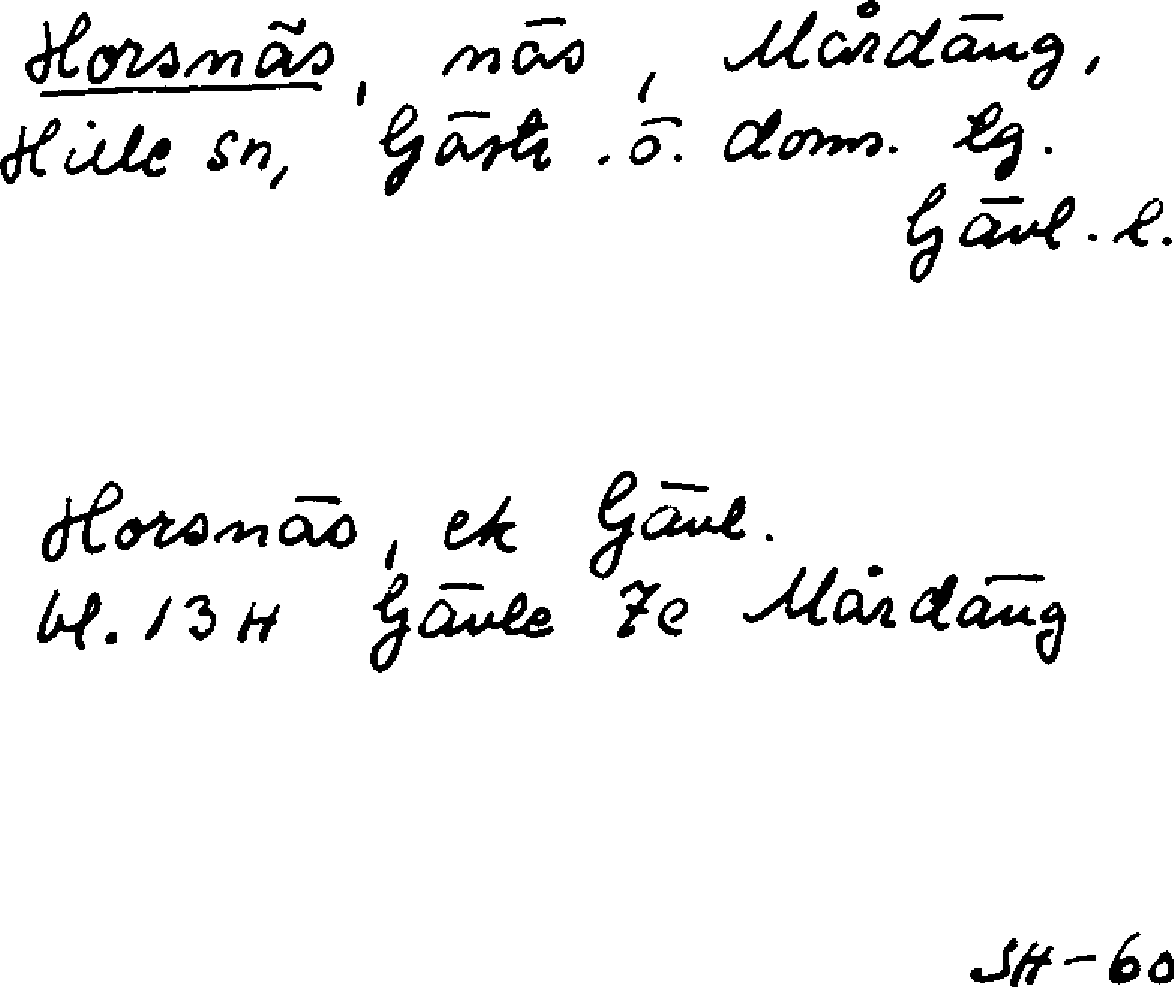 Horsnäs, näs, Mårdäng,
Hille sn, Gästr. ö. doms. lg.
Gävl. l.
Horsnäs, ek Gävl.
bl. 13H Gävle 7e Mårdäng
SH-60